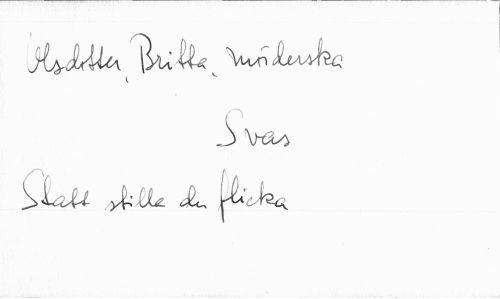 Olsdotter, Britta, mörderska
Svas
Statt stilla du flicka